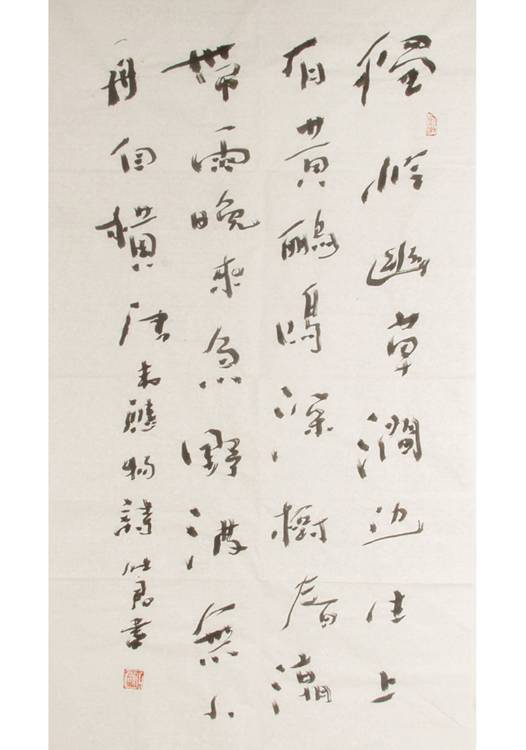 獨怜幽草澗边生上
有黃鸝鳴深樹春潮
帶雨晚来急野渡無人
舟自橫 唐韋應物詩 書